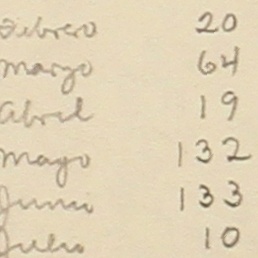 Febrero 20
Marzo 64
Abril 19
Mayo 132
Junio 133
Julio 10